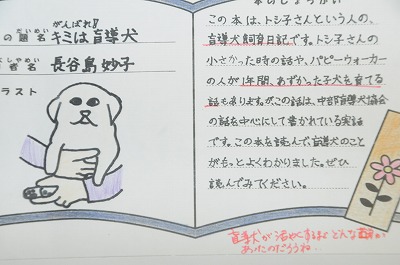 がんばれ!!
の題名 キミは盲導犬
だいめい
しゃめい
者名 長谷島妙子
ラスト
この本は、トシ子さんという人の、
盲導犬飼育日記です。トシ子さんの
小さかった時の話や、パピーウォーカー
の人が1年間、あずかった子犬を育てる
話もあります。この話は、中部盲導犬協会
の話を中心にして書かれている実話
です。この本を読んで盲導犬のこと
がもっとよくわかりました。ぜひ
読んでみてください。
盲導犬が活やくするまでどんな
あったのだろうね